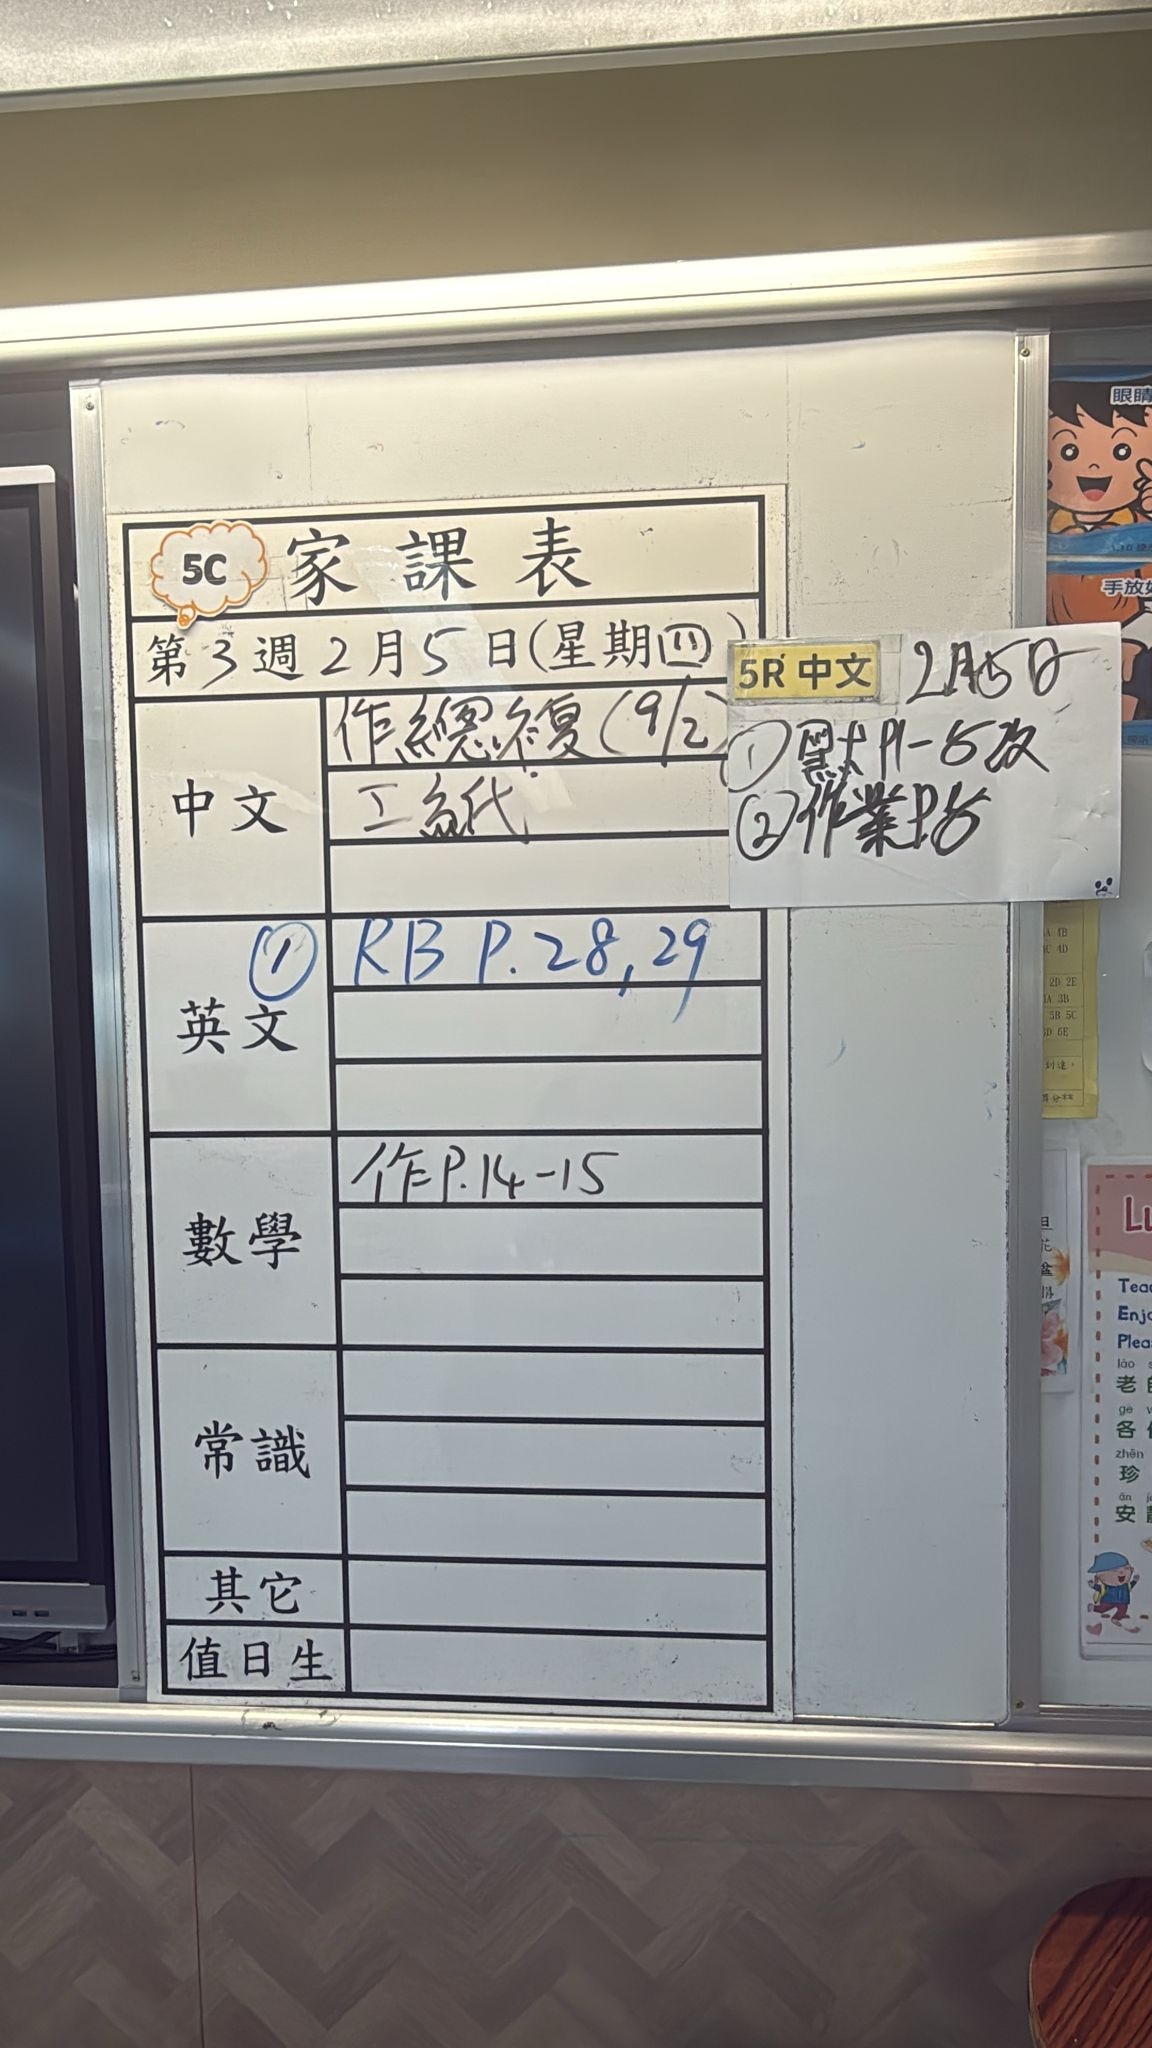 5C 家課表
第3週2月5日(星期四)
中文
作總復(9/2)
工紙
5R 中文 2月5日
① P1-5改
② 作業P.
英文
① RB P.28,29
數學
作P.14-15
常識
其它
值日生
眼睛
手放
4B
4D
2D 2E
3A 3B
5B 5C
6E
到達。
Lu
Tea
Enjo
Plea
lǎo
老
gè
各
zhēn
珍
ān
安